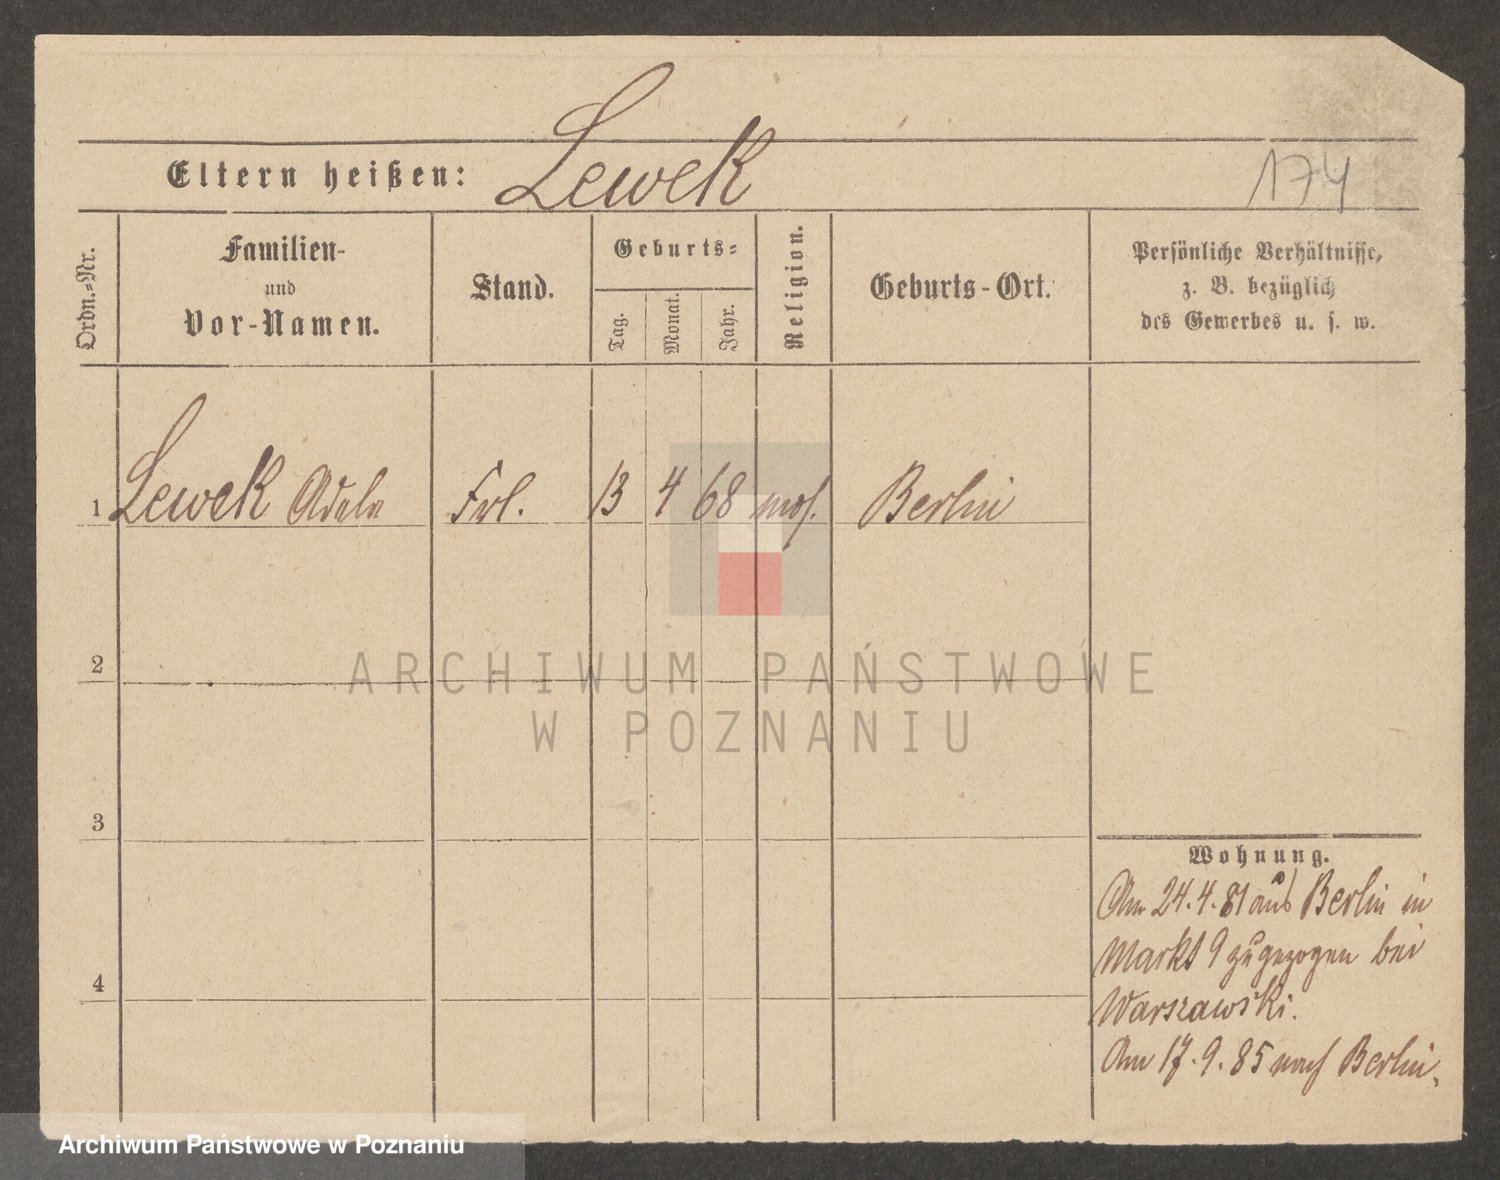 Eltern heißen: Lewek
174
Ordn.-Nr.
Familien-
und
Vor-Namen.
Stand.
Geburts-
Tag.
Monat.
Jahr.
Religion.
Geburts-Ort.
Persönliche Verhältnisse,
z. B. bezüglich
des Gewerbes u. s. w.
1 Lewek Adele Frl. 13 4 68 mos. Berlin
ARCHIWUM PAŃSTWOWE
W POZNANIU
2
3
4
Wohnung.
Am 24.4.81 aus Berlin in
Markt 9 zugezogen bei
Warszawski.
Am 17.9.85 nach Berlin.
Archiwum Państwowe w Poznaniu